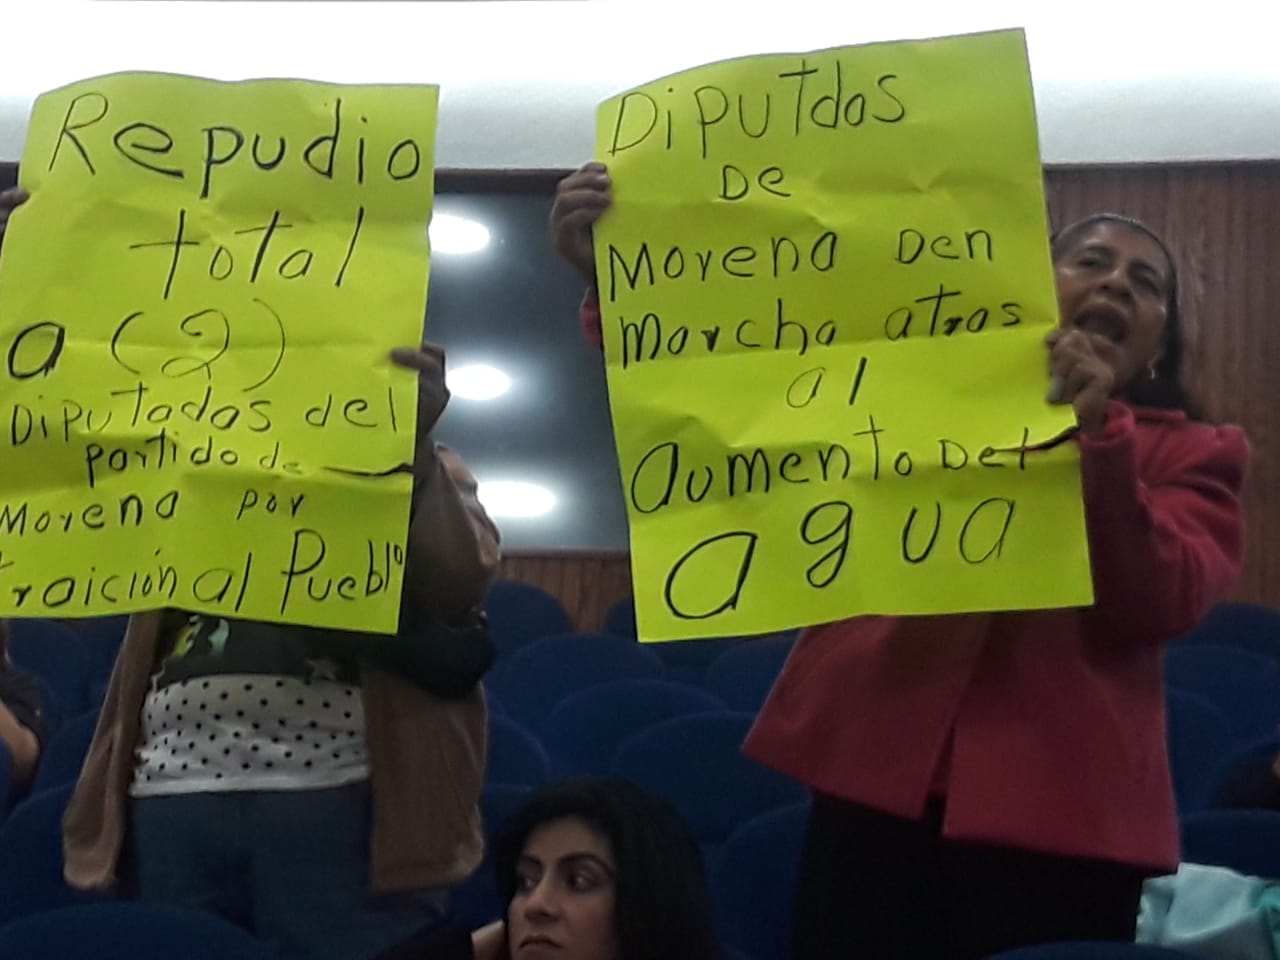 Repudio
total
a (2)
Diputados del
partido de
Morena por
traición al Pueblo
Diputdos
De
Morena Den
Marcha atras
al
aumento Del
agua